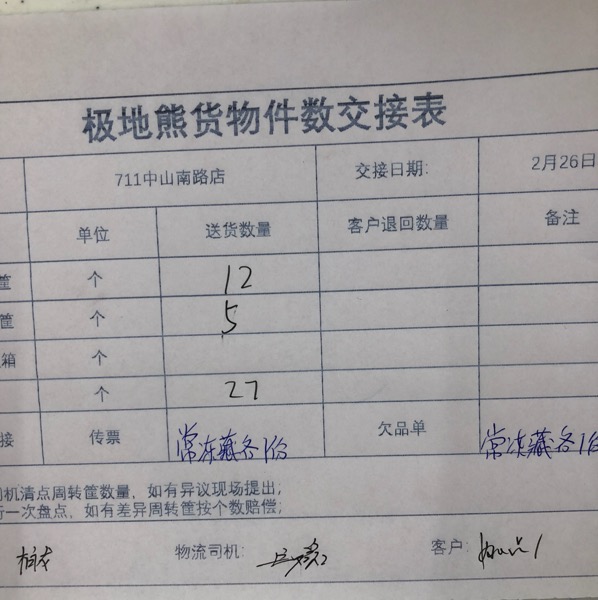 极地熊货物件数交接表
711中山南路店 交接日期: 2月26日
单位 送货数量 客户退回数量 备注
筐 个 12
筐 个 5
箱 个
个 27
接 传票 常冻藏各1份 欠品单 常冻藏各1份
司机清点周转筐数量，如有异议现场提出；
行一次盘点，如有差异周转筐按个数赔偿；
物流司机: 客户: